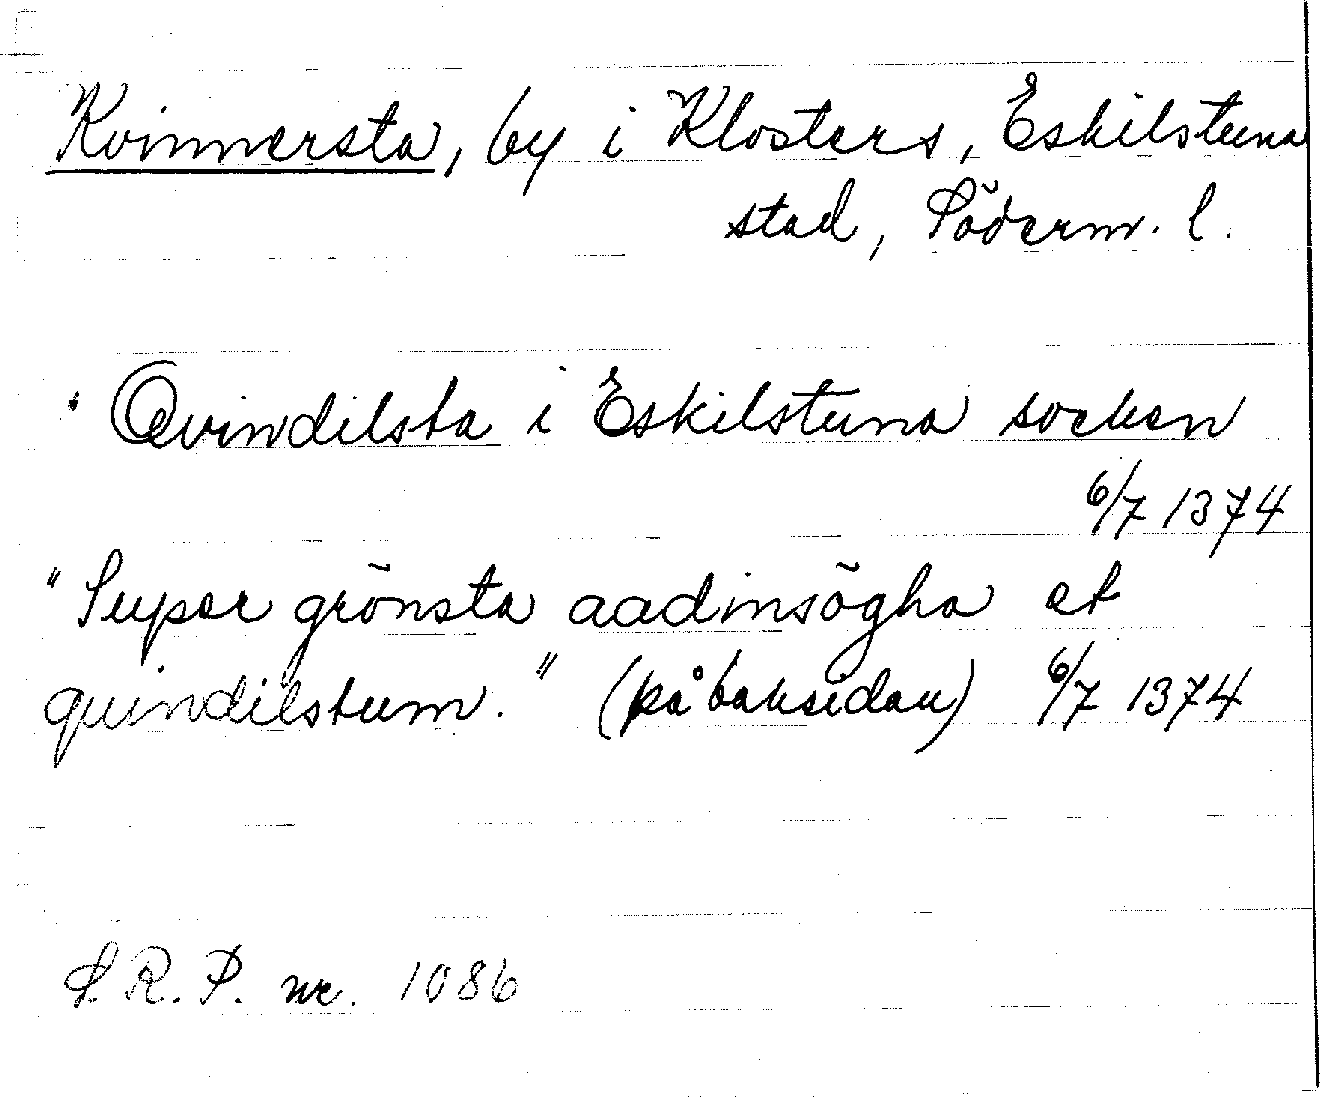 Kvinnersta, by i Klosters, Eskilstuna
stad, Söderm. l.
" Qvindilsta i Eskilstuna socken
6/7 1374
"Super grönsta aadinsögha et
quindilstum." (på baksidan) 6/7 1374
S.R.P. nr. 1086